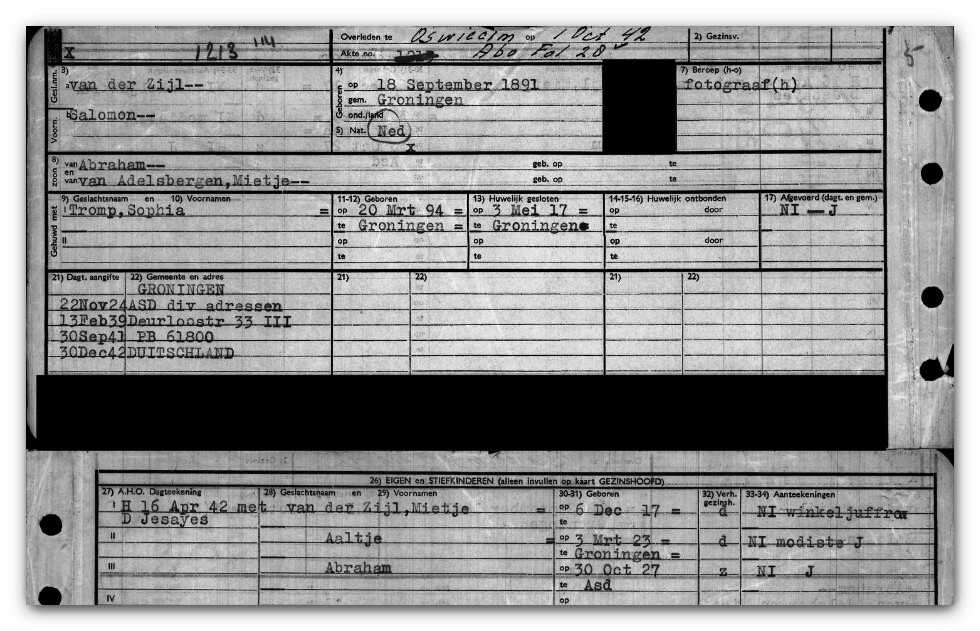 X 1213 114 Overleden te Oswiecim op 1 Oct 42 2) Gezinsv.
Akte no. Abo Fol 20
Gesl.nm. 3) van der Zijl-- 4) Geboren op 18 September 1891 7) Beroep (h-o)
fotograaf(h)
gem. Groningen
Voorn. Salomon-- ond./land
5) Nat. Ned
X
8) zoon van Abraham-- geb. op te
en van van Adelsbergen,Mietje-- geb. op te
Gehuwd met 9) Geslachtsnaam en 10) Voornamen 11-12) Geboren 13) Huwelijk gesloten 14-15-16) Huwelijk ontbonden 17) Afgevoerd (dagt. en gem.)
I Tromp,Sophia = op 20 Mrt 94 = op 3 Mei 17 = op door NI — J
te Groningen = te Groningen te
II op op op door
te te te
21) Dagt. aangifte 22) Gemeente en adres 21) 22) 21) 22)
GRONINGEN
22Nov24 ASD div adressen
13Feb39 Deurloostr 33 III
30Sep41 PB 61800
30Dec42 DUITSCHLAND
26) EIGEN en STIEFKINDEREN (alleen invullen op kaart GEZINSHOOFD)
27) A.H.O. Dagteekening 28) Geslachtsnaam en 29) Voornamen 30-31) Geboren 32) Verh. gezinsh. 33-34) Aanteekeningen
I H 16 Apr 42 met van der Zijl,Mietje = op 6 Dec 17 = d NI winkeljuffrou
D Jesayes te
II Aaltje = op 3 Mrt 23 = d NI modiste J
te Groningen =
III Abraham op 30 Oct 27 z NI J
te Asd
IV op